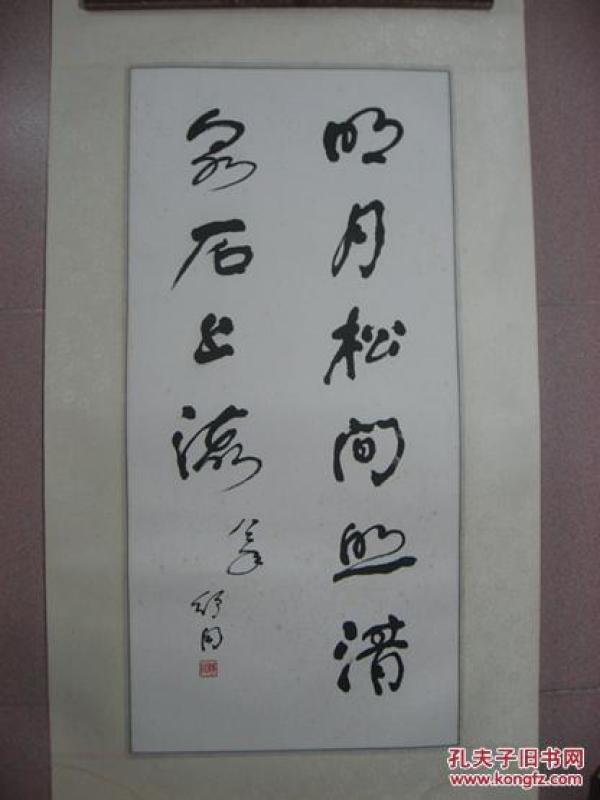 明月松间照清
泉石上流
舒同
孔夫子旧书网
www.kongfz.com